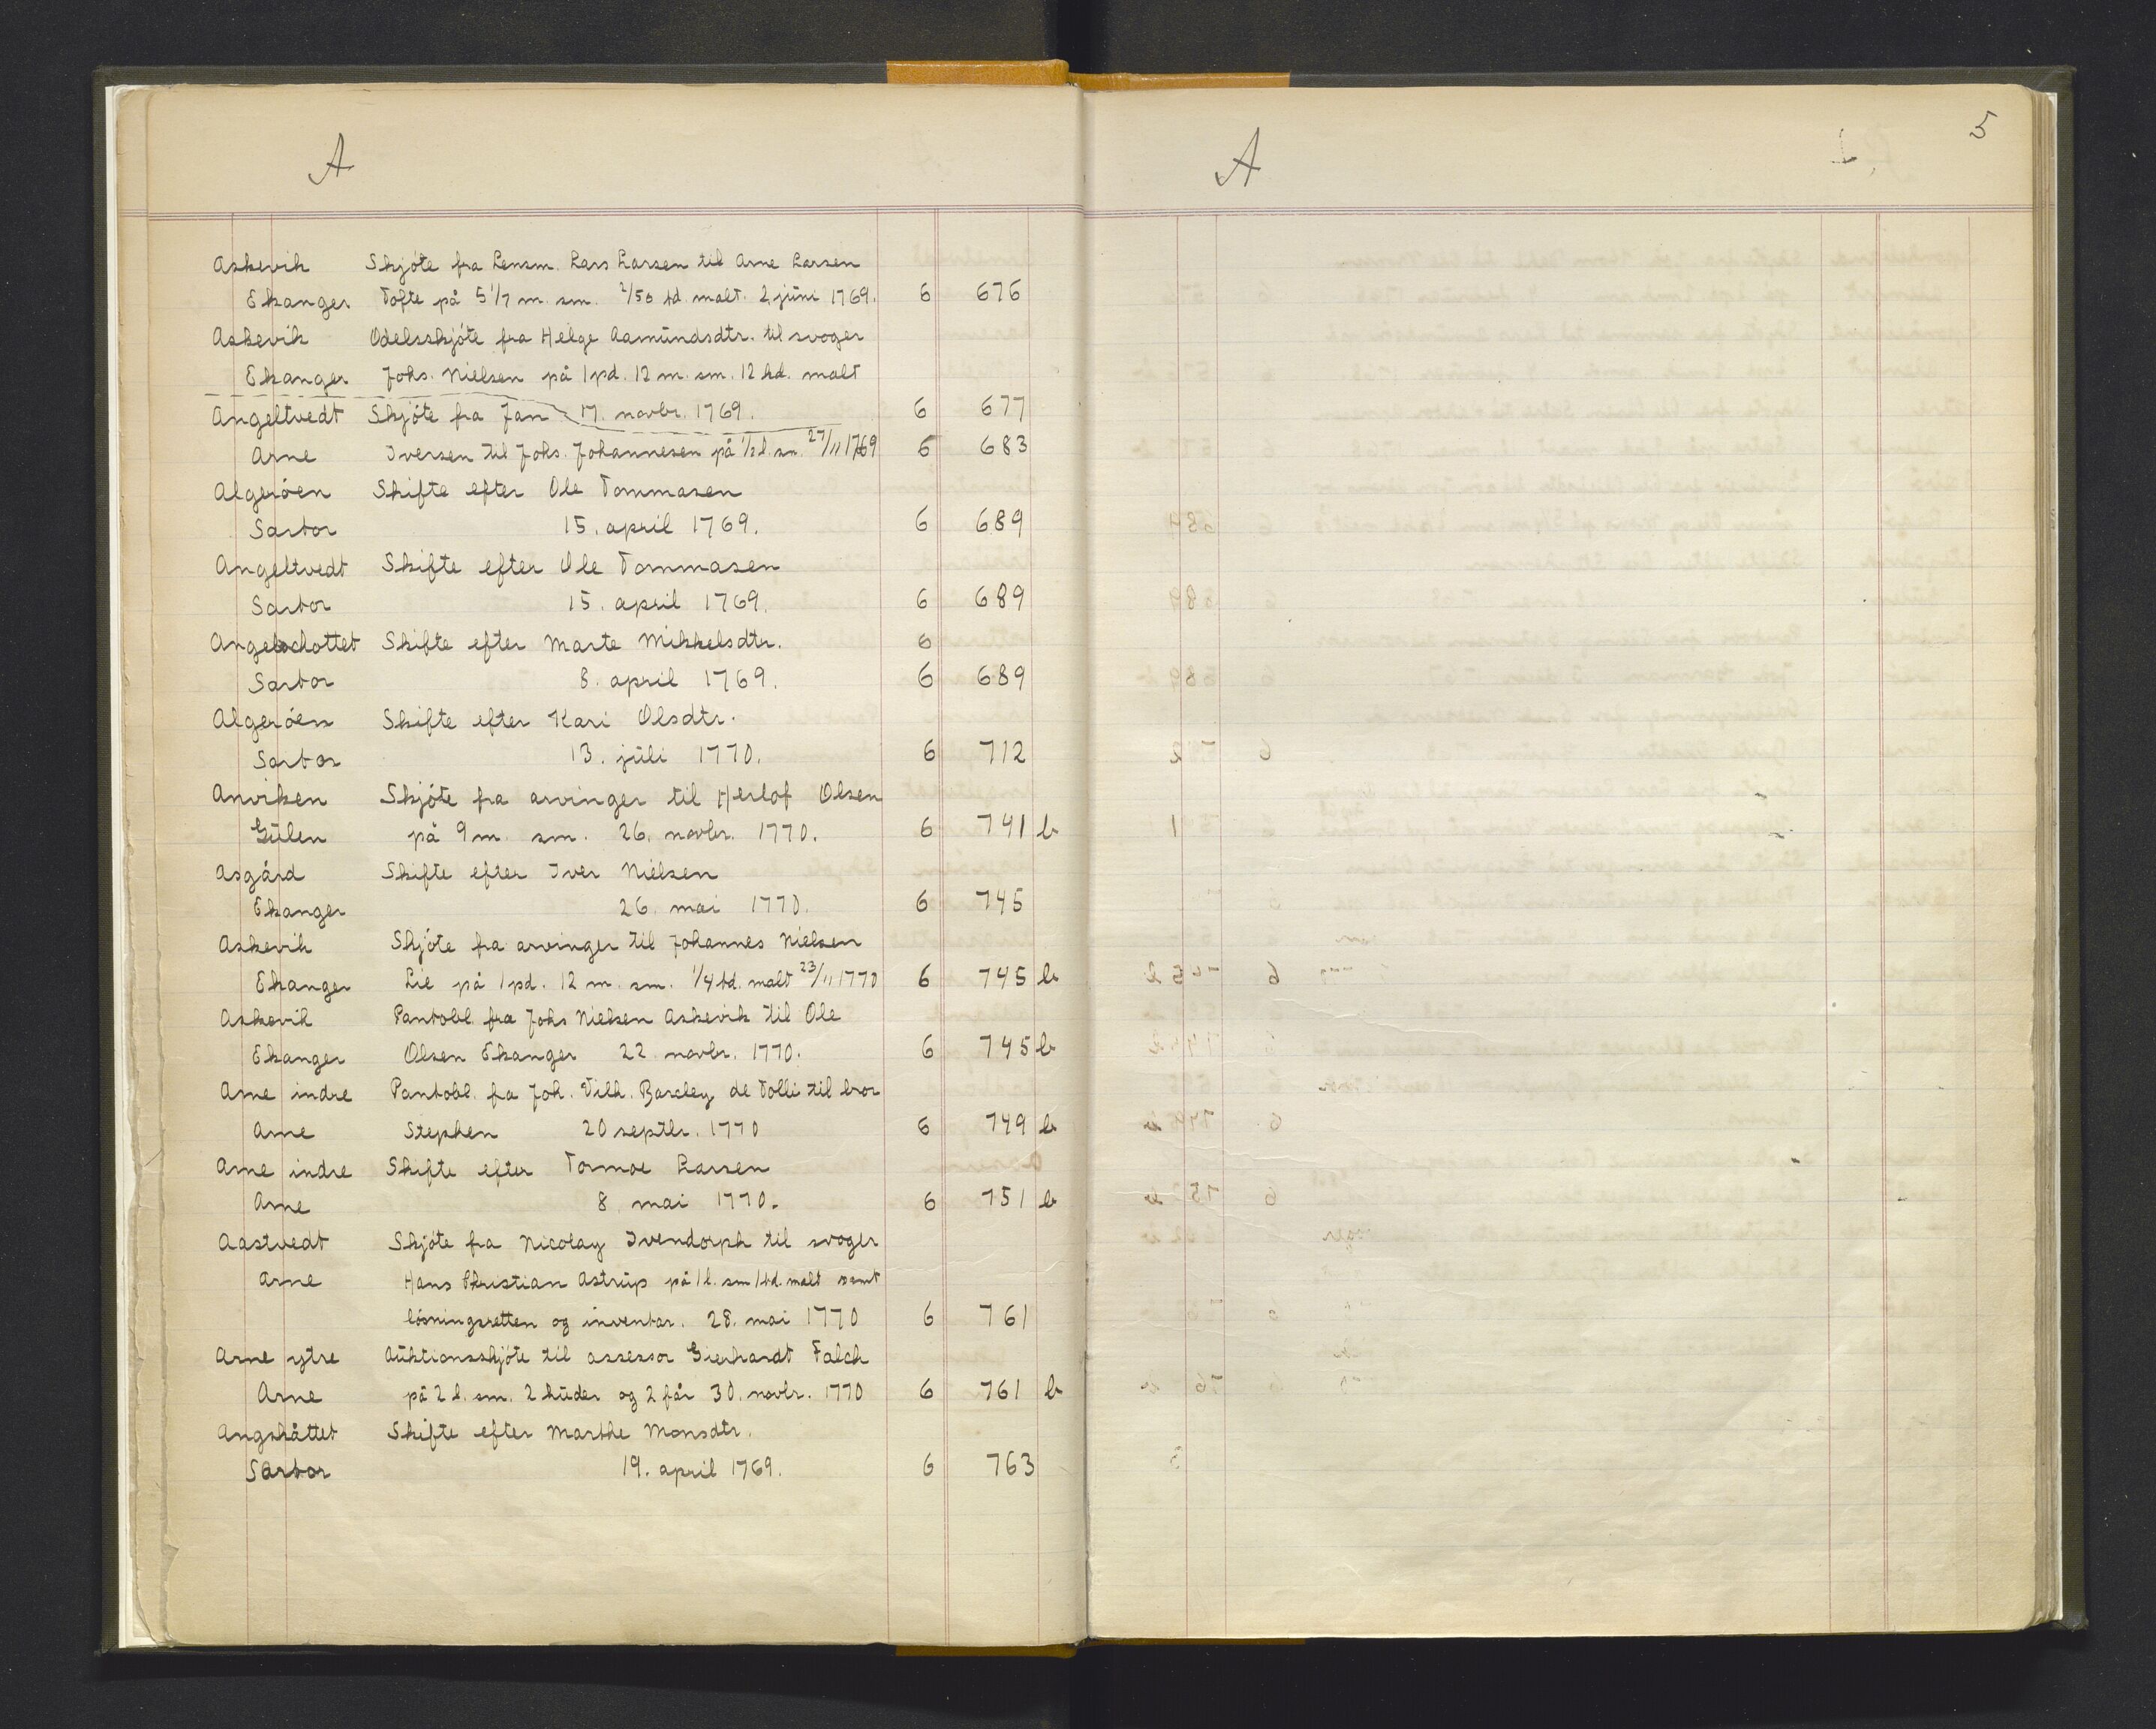 A
Askevik Skjöte fra Lensm. Lars Larsen til Arne Larsen
Ekanger Tofte på 5 1/7 m. sm. 2/50 td. malt. 2 juni 1769. 6 676
Askevik Odelsskjöte fra Helge Aamundsdtr. til svoger
Ekanger Johs. Nielsen på 1 pd. 12 m. sm. 12 kd. malt
17. novbr. 1769. 6 677
Angeltvedt Skjöte fra Jan
Arne Iversen til Johs. Johannesen på 1/2 l. sm. 27/11 1769 6 683
Algeröen Skifte efter Ole Tommasen
Sartor 15. april 1769. 6 689
Angeltvedt Skifte efter Ole Tommasen
Sartor 15. april 1769. 6 689
Angelschottet Skifte efter Marte Mikkelsdtr. 6
Sartor 8. april 1769. 6 689
Algeröen Skifte efter Kari Olsdtr.
Sartor 13. juli 1770. 6 712
Anviken Skjöte fra arvinger til Herlof Olsen
Gulen på 9 m. sm. 26. novbr. 1770. 6 741 b
Asgård Skifte efter Iver Nielsen
Ekanger 26. mai 1770. 6 745
Askevik Skjöte fra arvinger til Johannes Nielsen
Ekanger Lie på 1 pd. 12 m. sm. 1/4 td. malt 23/11 1770 6 745 b
Askevik Pantobl. fra Johs Nielsen Askevik til Ole
Ekanger Olsen Ekanger 22. novbr. 1770. 6 745 b
Arne indre Pantobl. fra Joh. Vilh. Barcley de Tolli til bror
Arne Stephen 20 septbr. 1770 6 749 b
Arne indre Skifte efter Tormoe Larsen
Arne 8. mai 1770. 6 751 b
Aastvedt Skjöte fra Nicolay Ivendorph til svoger
Arne Hans Christian Astrup på 1 l. sm 1 td. malt samt
lösningsretten og inventar. 28. mai 1770 6 761
Arne ytre Auktionsskjöte til assessor Gierhardt Falch
Arne på 2 l. sm. 2 huder og 2 får 30. novbr. 1770 6 761 b
Angskåttet Skifte efter Marthe Monsdtr.
Sartor 19. april 1769. 6 763
A
5